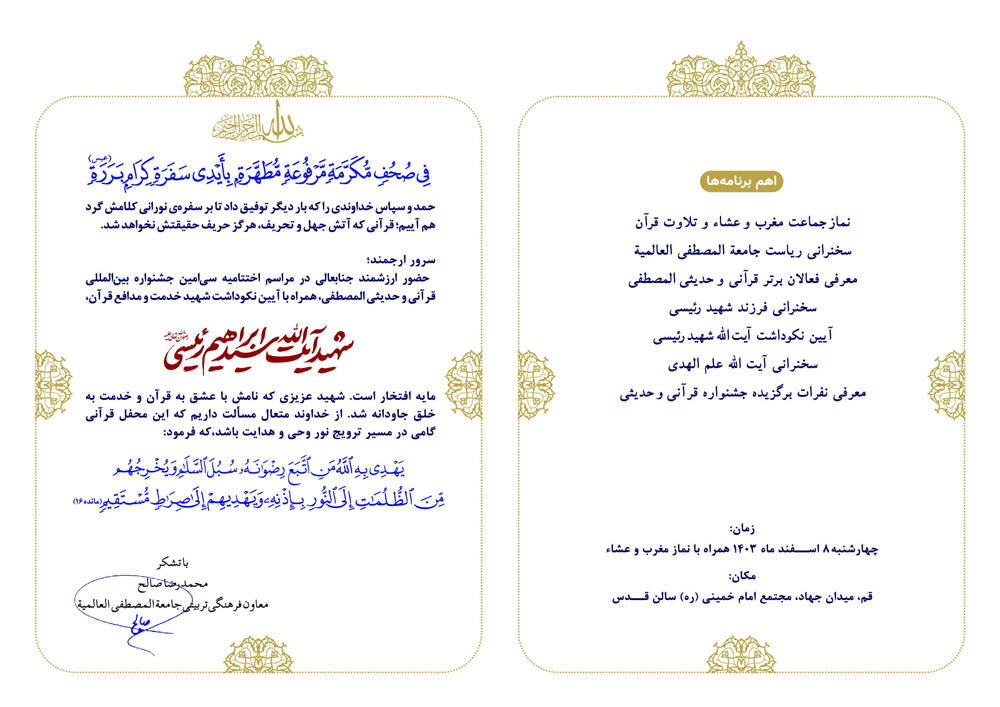 بسم الله الرحمن الرحیم
فِي صُحُفٍ مُّكَرَّمَةٍ مَّرْفُوعَةٍ مُّطَهَّرَةٍ بِأَيْدِي سَفَرَةٍ كِرَامٍ بَرَرَةٍ (عبس)
حمد و سپاس خداوندی را که بار دیگر توفیق داد تا بر سفره‌ی نورانی کلامش گرد
هم آییم؛ قرآنی که آتش جهل و تحریف، هرگز حریف حقیقتش نخواهد شد.
سرور ارجمند؛
حضور ارزشمند جنابعالی در مراسم اختتامیه سی‌امین جشنواره بین‌المللی
قرآنی و حدیثی المصطفی، همراه با آیین نکوداشت شهید خدمت و مدافع قرآن،
شهید آیت الله سید ابراهیم رئیسی
مایه افتخار است. شهید عزیزی که نامش با عشق به قرآن و خدمت به
خلق جاودانه شد. از خداوند متعال مسألت داریم که این محفل قرآنی
گامی در مسیر ترویج نور وحی و هدایت باشد،که فرمود:
يَهْدِي بِهِ اللَّهُ مَنِ اتَّبَعَ رِضْوَانَهُ سُبُلَ السَّلَامِ وَيُخْرِجُهُم
مِّنَ الظُّلُمَاتِ إِلَى النُّورِ بِإِذْنِهِ وَيَهْدِيهِمْ إِلَى صِرَاطٍ مُّسْتَقِيمٍ (مائده ۱۶)
با تشکر
محمدرضا صالح
معاون فرهنگی تربیتی جامعة المصطفی العالمیة
صالح
اهم برنامه‌ها
نماز جماعت مغرب و عشاء و تلاوت قرآن
سخنرانی ریاست جامعة المصطفی العالمیة
معرفی فعالان برتر قرآنی و حدیثی المصطفی
سخنرانی فرزند شهید رئیسی
آیین نکوداشت آیت‌الله شهید رئیسی
سخنرانی آیت الله علم الهدی
معرفی نفرات برگزیده جشنواره قرآنی و حدیثی
زمان:
چهارشنبه ۸ اسـفند ماه ۱۴۰۳ همراه با نماز مغرب و عشاء
مکان:
قم، میدان جهاد، مجتمع امام خمینی (ره) سالن قـدس